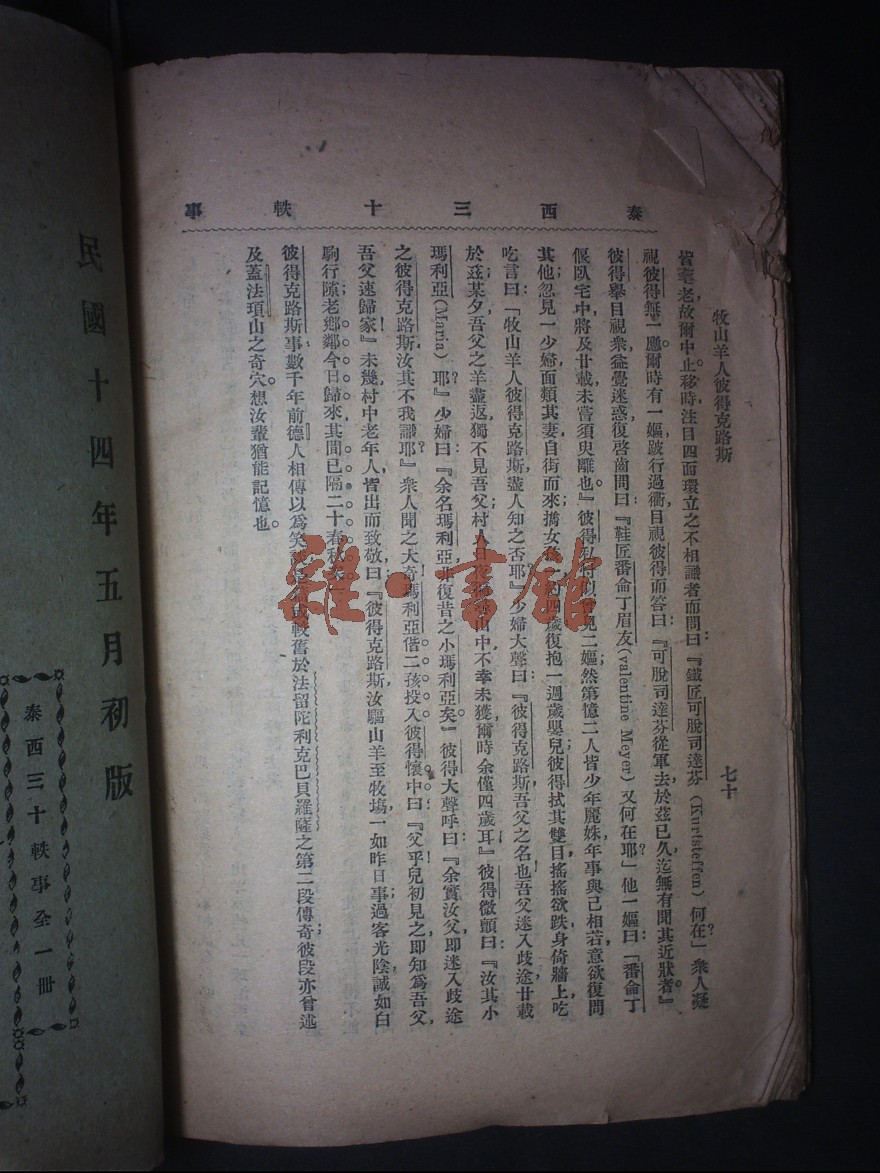 泰西三十軼事
牧山羊人彼得克路斯
七十
皆耄老故爾中止移時注目四面環立之不相識者而問曰『鐵匠可脫司達芬(Kuristeffen)何在』衆人凝
視彼得無一應爾時有一嫗跛行過衢目視彼得而答曰『可脫司達芬從軍去於茲已久迄無有聞其近狀者』
彼得舉目視衆益覺迷惑復啓齒問曰『鞋匠番侖丁眉友(valentine Meyer)又何在耶』他一嫗曰『番侖丁
偃臥宅中將及廿載未嘗須臾離也』彼得二嫗然第憶二人皆少年麗姝年事與己相若意欲復問
其他忽見一少婦面類其妻自街而來攜女孩四歲復抱一週歲嬰兒彼得拭其雙目搖搖欲跌身倚牆上吃
吃言曰『牧山羊人彼得克路斯盡人知之否耶』少婦大聲曰『彼得克路斯吾父之名也吾父迷入歧途廿載
於茲某夕吾父之羊盡返獨不見吾父村人日夜山中不幸未獲爾時余僅四歲耳』彼得微顫曰『汝其小
瑪利亞(Maria)耶』少婦曰『余名瑪利亞非復昔之小瑪利亞矣』彼得大聲呼曰『余實汝父即迷入歧途
之彼得克路斯汝其不我識耶』衆人聞之大奇瑪利亞偕二孩投入彼得懷中曰『父乎兒初見之即知爲吾父
吾父速歸家』未幾村中老年人皆出而致敬曰『彼得克路斯汝驅山羊至牧場一如昨日事過客光陰誠如白
駒行隙老鄉鄰今日歸來其間已隔二十春秋矣』
彼得克路斯事數千年前德人相傳以爲笑較舊於法留陀利克巴貝羅薩之第二段傳奇彼段亦曾述
及蓋法項山之奇穴想汝輩猶能記憶也
民國十四年五月初版
泰西三十軼事全一冊
雜·書館